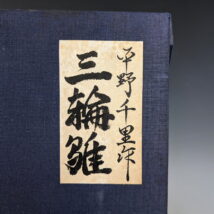 平野千里作
三輪雛